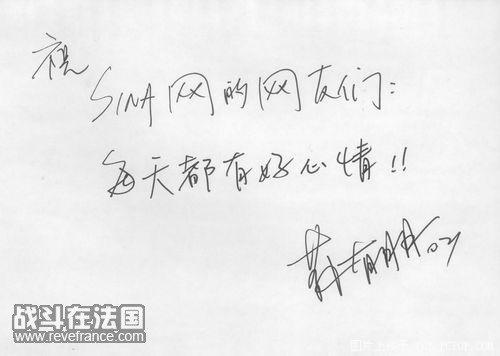 祝
SINA网的网友们:
每天都有好心情!!
战斗在法国
www.revefrance.com